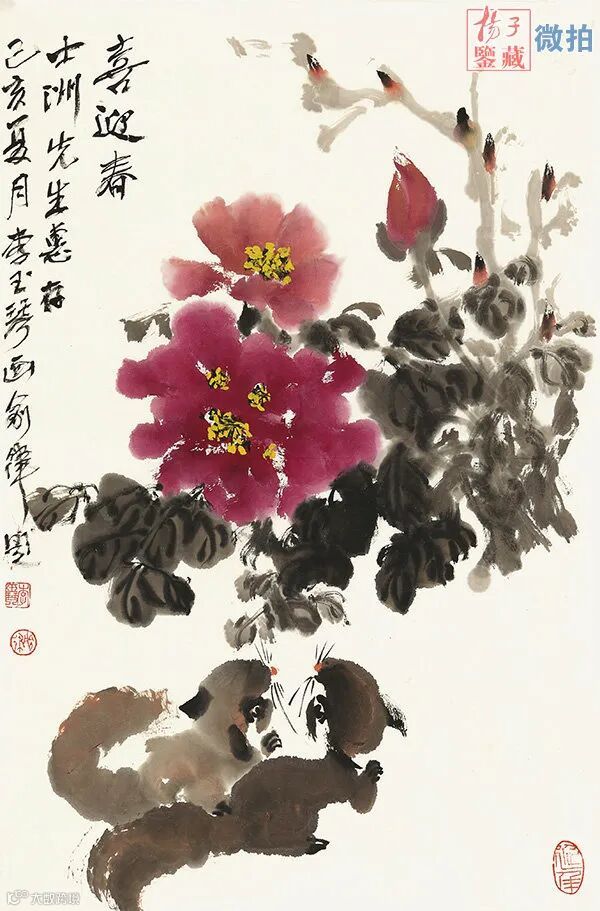 喜迎春
士洲先生惠存
己亥夏月李玉琴画俞律题
揚子
鑒藏
微拍
大数跨境